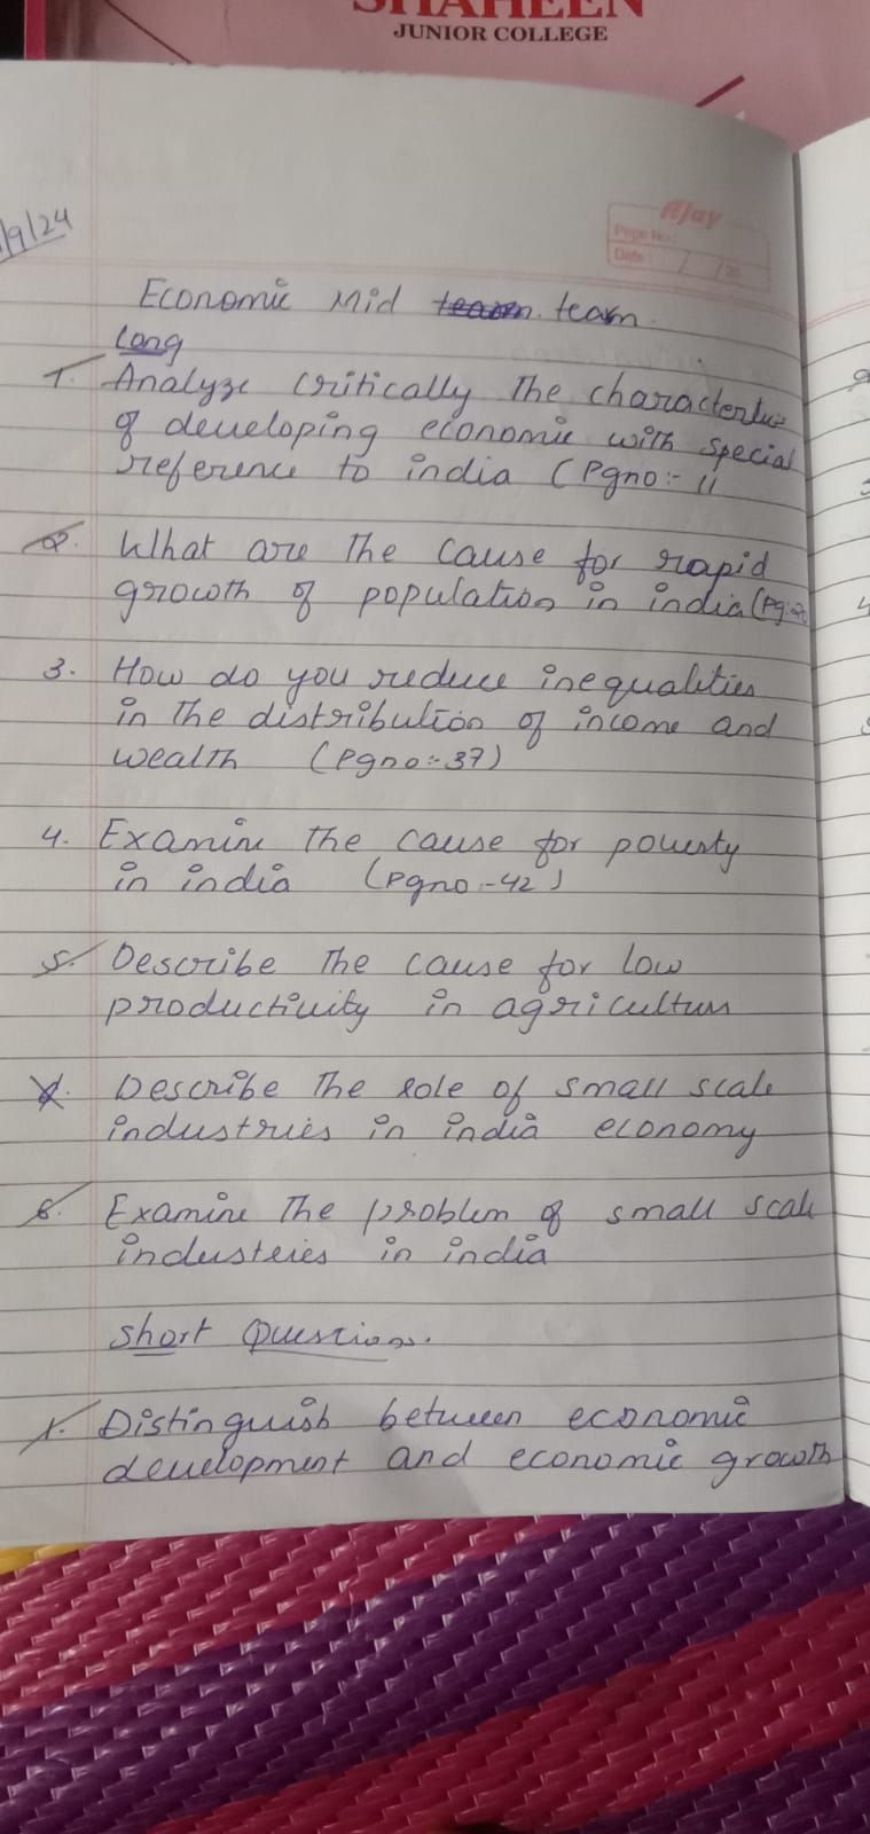 SHAHEEN
JUNIOR COLLEGE
/9/24
Ajay
Page No.:
Date: / /20
Economic Mid team
Long
1. Analyze critically The
of developing economic with special
reference to india (Pgno:- 11
2. What are The cause for rapid
growth of population in india (Pg:-
3. How do you reduce inequalities
in The distribution of income and
wealth (Pgno:-37)
4. Examine The cause for poverty
in india (Pgno:-42)
5. Describe The cause for low
productivity in
Describe The role of small scale
industries in india economy
6. Examine The problem of small scale
industeies in india
Short Question.
1. Distinguish between economic
development and economic growth